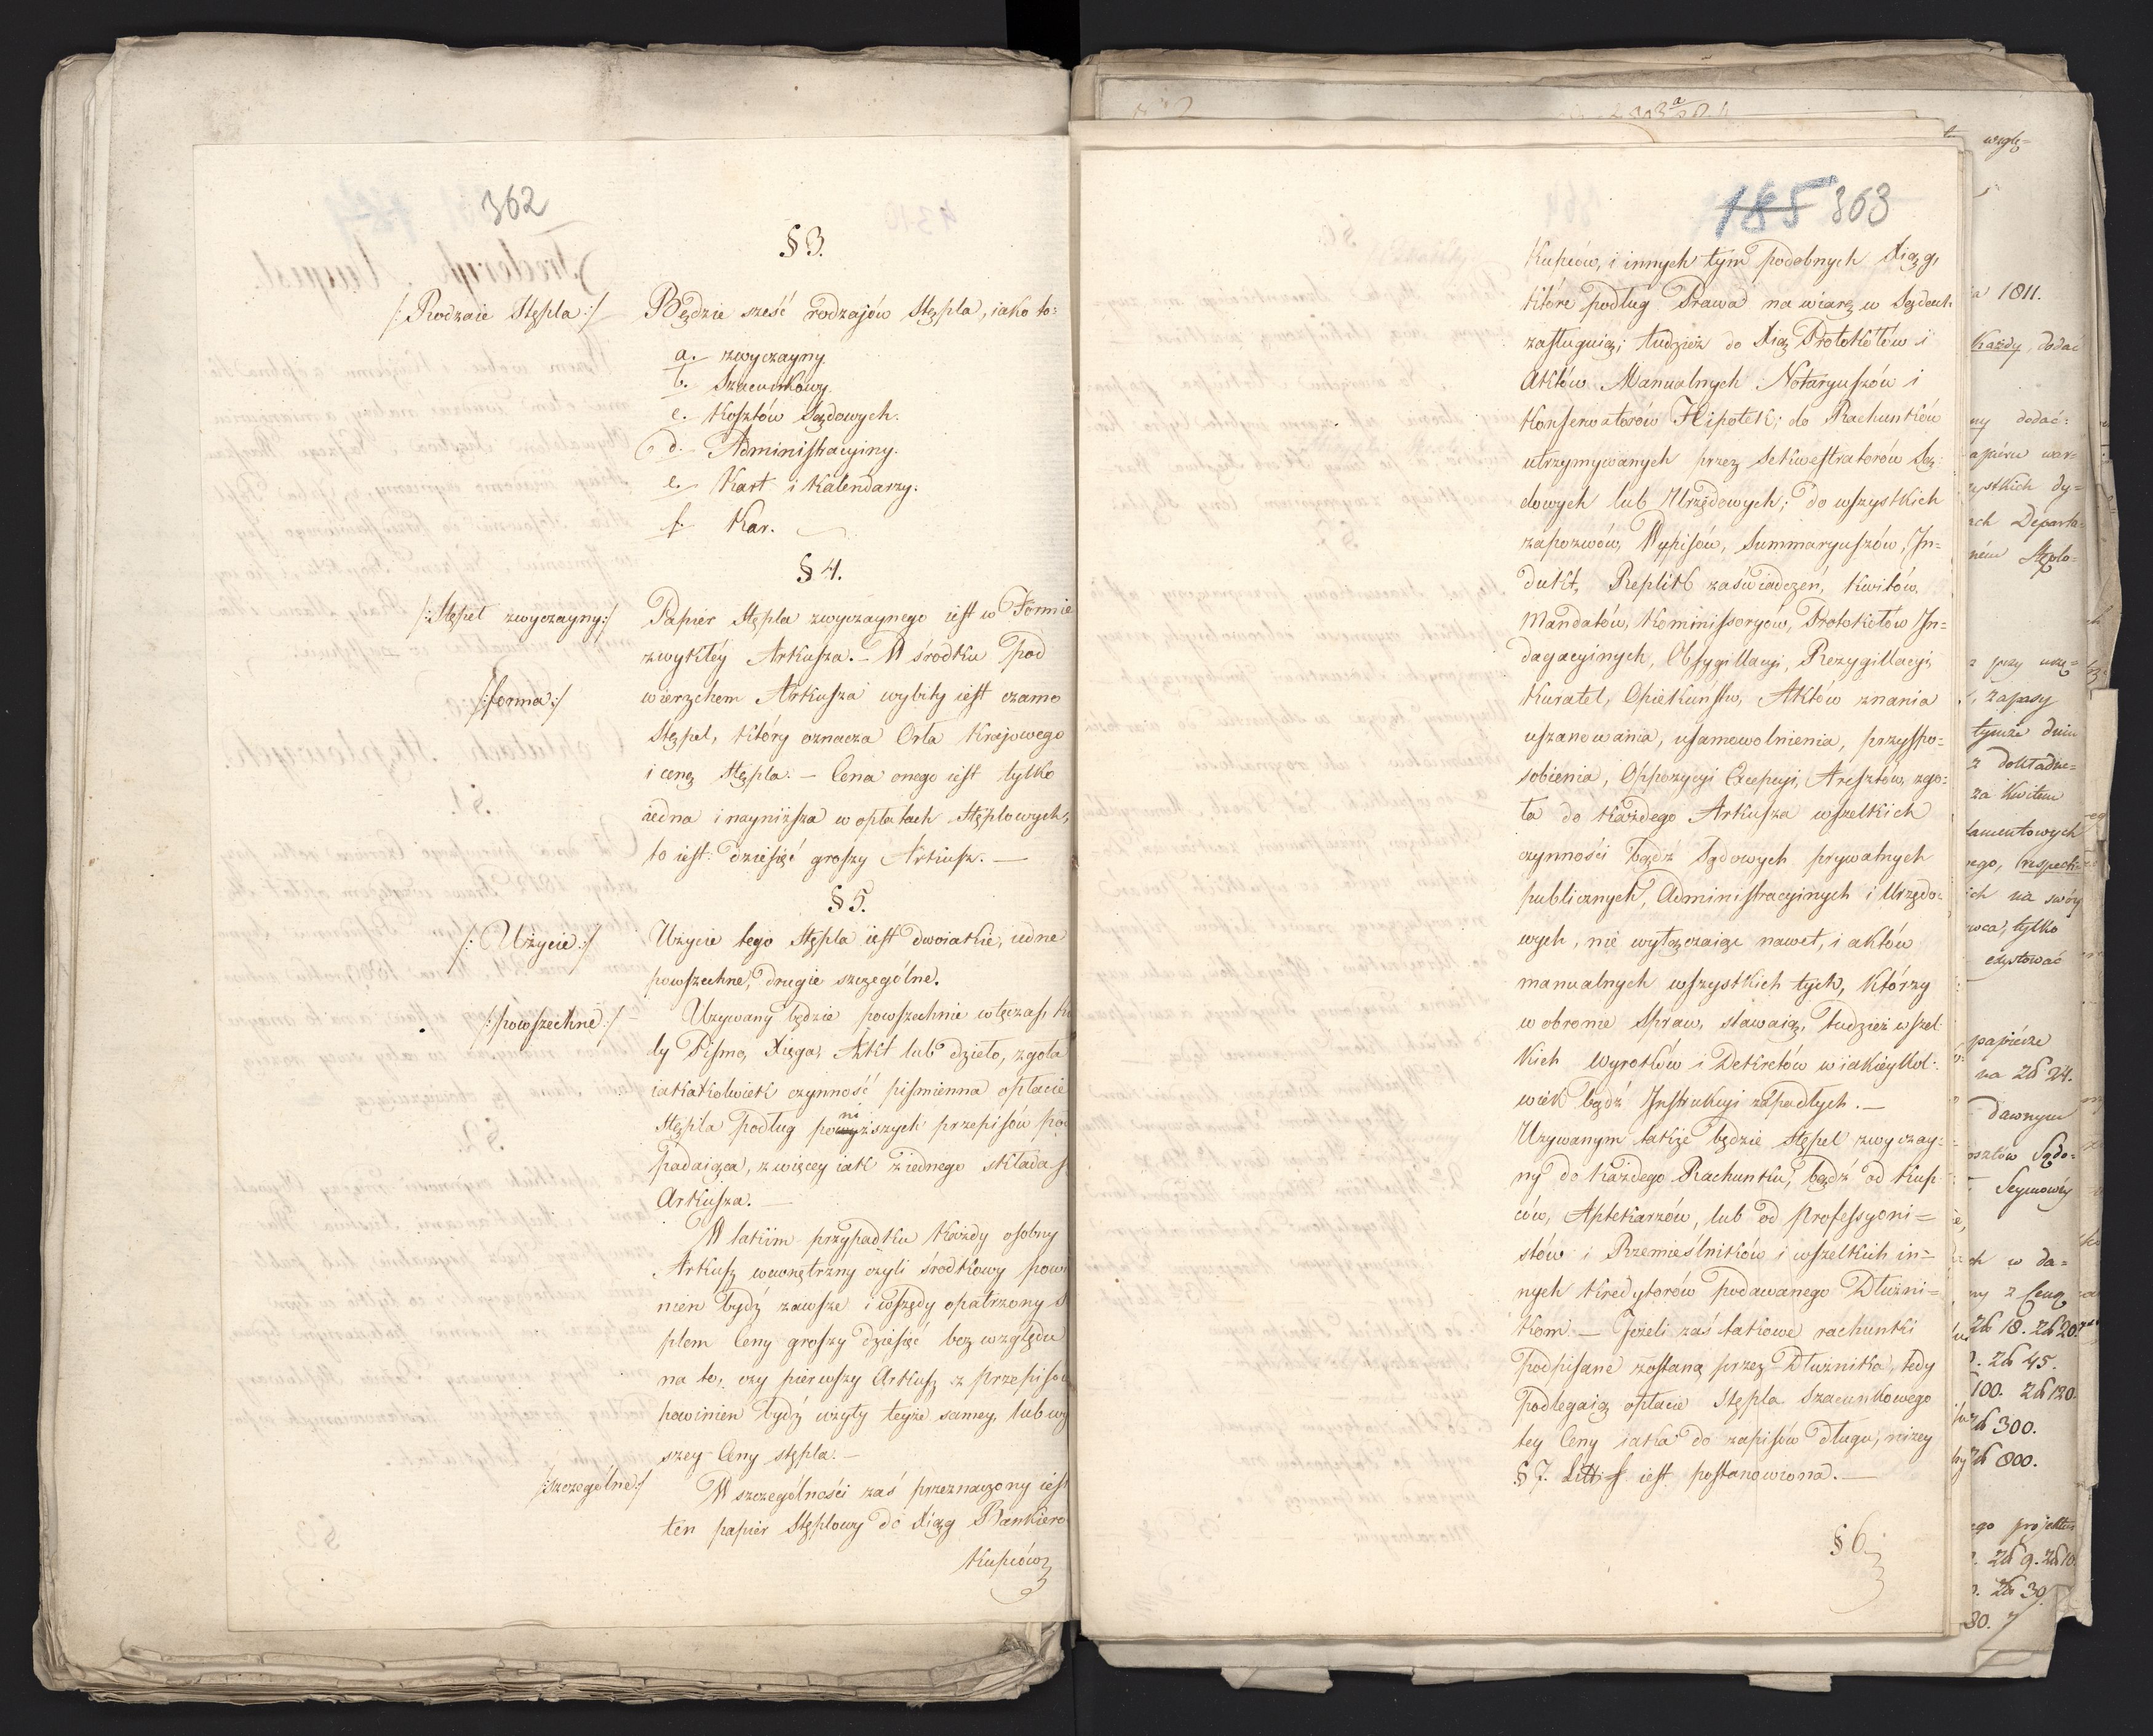 362
§ 3.
/: Rodzaie Stępla :/
Będzie sześć rodzajów Stępla, iako to:
a. zwyczayny.
b. Szacunkowy.
c. Kosztów Sądowych.
d. Administracyiny.
e. Kart i Kalendarzy.
f. Kar.
§ 4.
/: Stępel zwyczayny :/
Papier Stępla zwyczaynego iest w Formie
zwykłéy Arkusza. – W środku pod
/: forma :/
wierzchem Arkusza wybity iest czarno
Stępel, który oznacza Orła Krajowego
i cenę Stępla. – Cena onego iest tylko
iedna i nayniższa w opłatach Stęplowych,
to iest: dziesięć groszy Arkusz. –
§ 5.
/: Użycie :/
Użycie tego Stępla iest dwoiakie, iedne
powszechne, drugie szczególne.
/: powszechne :/
Używany będzie powszechnie wtęczas,
dy Pismo, Xięga, Akt lub dzieło, zgoła
iakakolwiek czynność piśmienna opłacie
Stępla podług poniższych przepisów pod
padaiąca, z więcey iak z iednego składa
Arkusza. –
W takim przypadku każdy osobny
Arkusz wewnętrzny czyli środkowy powi
nien bydź zawsze i wszędy opatrzony S
plem Ceny groszy dziesięć bez względu
na to, czy pierwszy Arkusz z przepisów
powinien bydź użyty teyże samey, lub wy
szey Ceny stępla. –
/: szczególne :/
W szczególności zaś przeznaczony iest
ten papier Stęplowy do Xiąg Bankiero
Kupców,
185 363
Kupców, i innych tym podobnych Xiąg,
które podług Prawa na wiarę w Sądach
zasługuią; tudzież do Xiąg Protokółów i
Aktów Manualnych Notaryuszów i
Konserwatorów Hipotek; do Rachunków
utrzymywanych przez Sekwestratorów Są-
dowych lub Urzędowych; do wszystkich
zapozwów, Wypisów, Summaryuszów, In=
dukt, Replik zaświadczeń, Kwitów,
Mandatów, Kommissoryów, Protokółów In=
dagacyinych, Obsygillacyi, Rezygillacyi,
Kuratel, Opiekuństw, Aktów znania
uszanowania, usamowolnienia, przyspo=
sobienia, Oppozycyi Excepcyi, Aresztów, zgo=
ła do każdego Arkusza wszelkich
czynności bądź Sądowych prywatnych
publicznych, Administracyinych i Urzędo=
wych, nie wyłączaiąc nawet, i aktów
manualnych wszystkich tych, którzy
w obronie Spraw, stawaią, tudzież wszel=
kich Wyroków i Dekretów w iakieykol=
wiek bądź Instrukcyi zapadłych. –
Używanym także będzie Stępel zwyczay=
ny do każdego Rachunku, bądź od Kup=
ców, Aptekarzów, lub od professyoni=
stów i Rzemieślników i wszelkich in=
nych Kredytorów podawanego Dłużni=
kom. – Jeżeli zaś takowe rachunki
Podpisane zostaną przez Dłużnika, tedy
Podlegaią opłacie Stępla Szacunkowego
tey Ceny iaka do zapisów długu, niżey
§ 7. Litt: f. iest postanowiona. –
§ 6.
wzglę=
1811.
Każdy, dodać
dodać:
war=
dy=
Departa=
zapasy
tymże dniu
dokładne=
za Kwitem
respect=
na swóy
tylko
papiérze
24.
dawnym
Sądo=
w da=
z Ceną
18. 20.
45.
100. 120.
300.
800.
projektu
9. 10.
30
30.